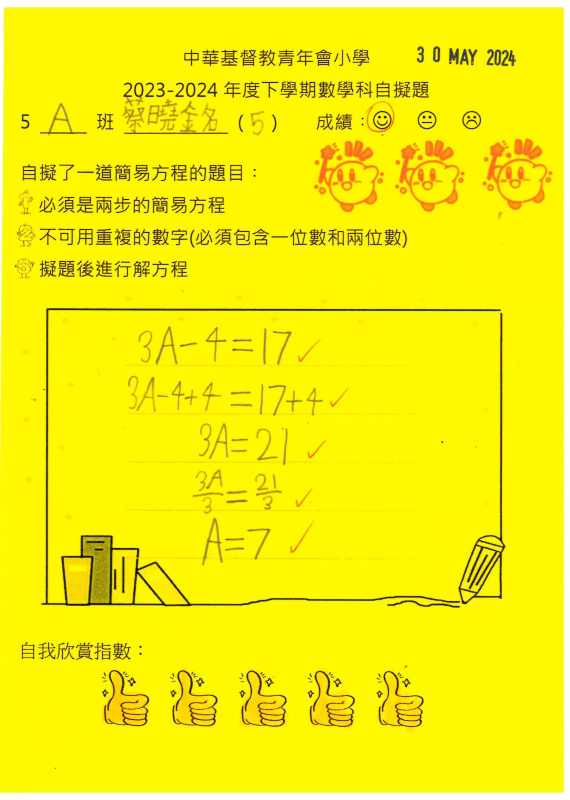 中華基督教青年會小學 30 MAY 2024
2023-2024 年度下學期數學科自擬題
5 A 班 蔡曉銘 (5) 成績：
自擬了一道簡易方程的題目：
必須是兩步的簡易方程
不可用重複的數字(必須包含一位數和兩位數)
擬題後進行解方程
3A-4=17
3A-4+4=17+4
3A=21
3A/3=21/3
A=7
自我欣賞指數：